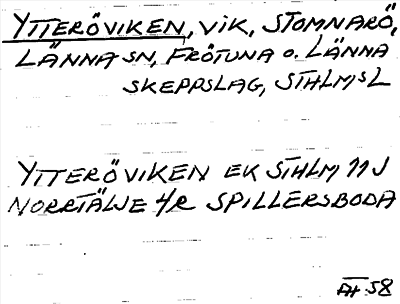 YTTERÖVIKEN, VIK, STOMNARÖ,
LÄNNA SN, FRÖTUNA O. LÄNNA
SKEPPSLAG, STHLMS L
YTTERÖVIKEN EK STHLM 11 J
NORRTÄLJE 4/R SPILLERSBODA
58